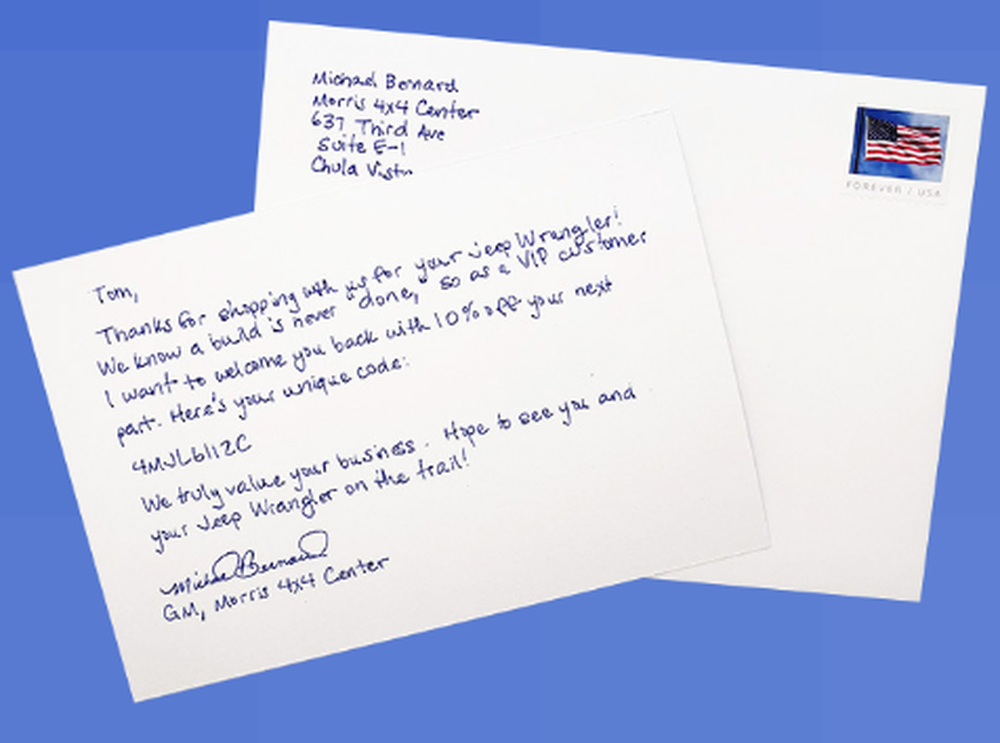 Michael Bernard
Morris 4x4 Center
637 Third Ave
Suite E-1
Chula Vista
FOREVER / USA
Tom,
Thanks for shopping with us for your Jeep Wrangler!
We know a build is never "done," so as a VIP customer
I want to welcome you back with 10% off your next
part. Here's your unique code:
4MJL6112C
We truly value your business. Hope to see you and
your Jeep Wrangler on the trail!
Michael Bernard
GM, Morris 4x4 Center